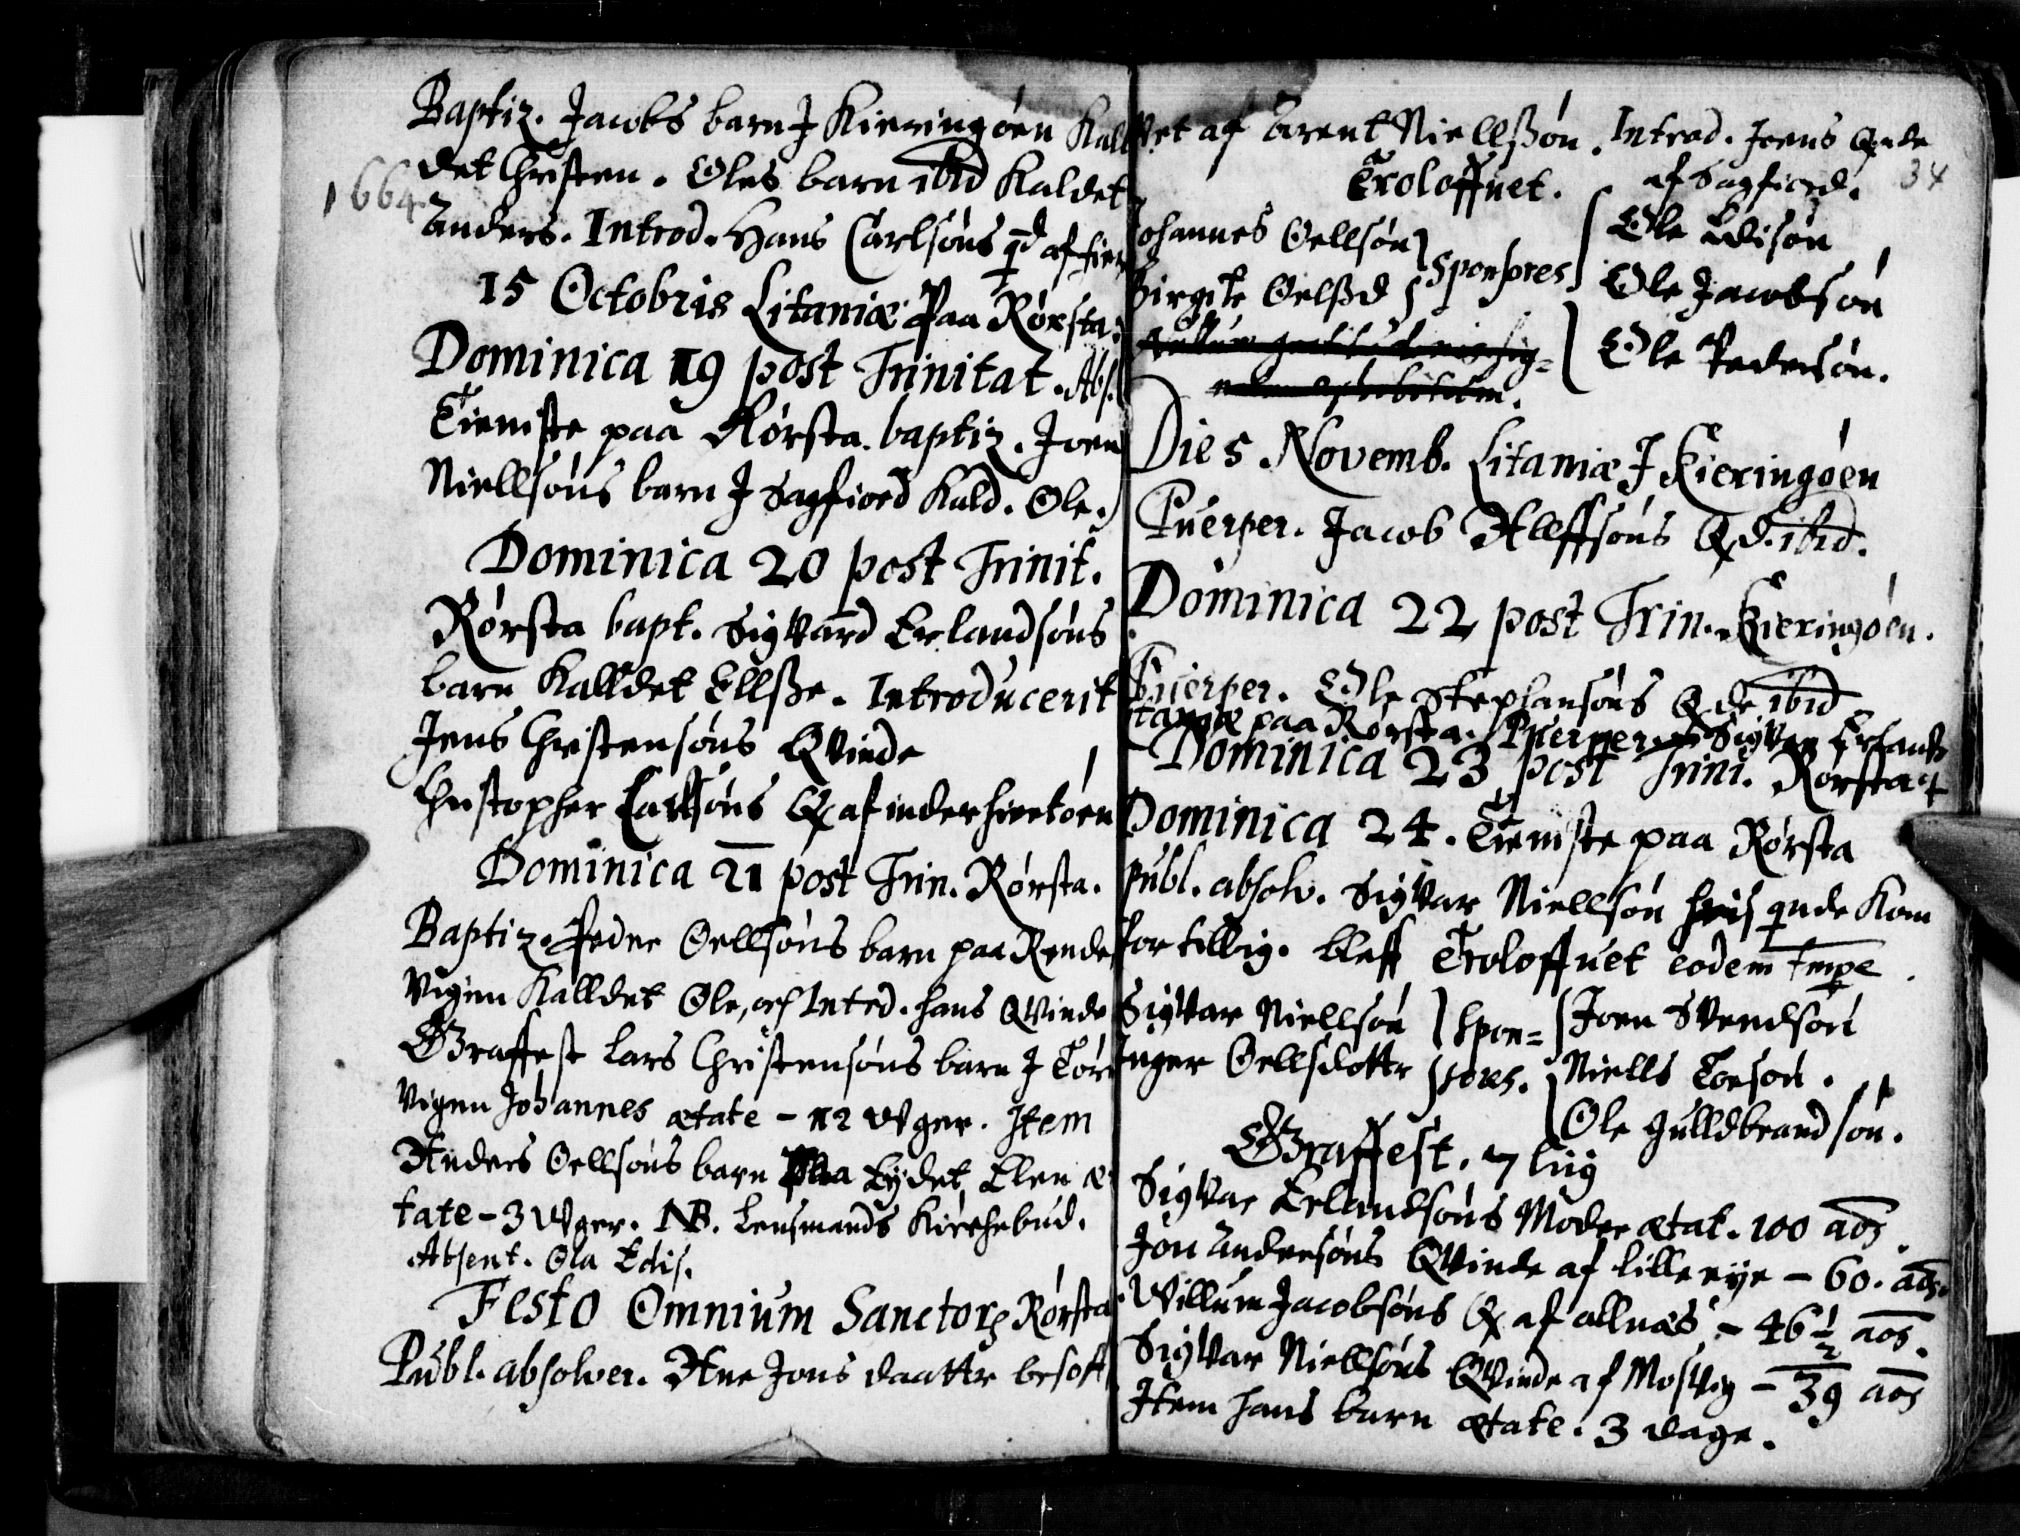 Baptiz. Jacobs barn J Kieringøen Kall
det Christen. Oles barn ibid Kaldet
1664.
Anders. Introd. Hans Carlsøns qd af
15 Octobris Litaniæ Paa Rørsta.
Dominica 19 post Trinitat. Abs.
Tieniste paa Rørsta. baptiz. Joen
Niellsøns barn J Sagfiord Kald. Ole.
Dominica 20 post Trinit.
Rørsta bapt. Sigvard Erlandsøns
barn Kalldet Ellsße. Introducerit
Jens Christensøns Qvinde
Christopher Carlsøns Q af inderhiertøen
Dominica 21 post Trin. Rørsta.
Baptiz. Peder Oellsøns barn paa Rende
vigen Kalldet Ole, och Introd. hans Qvinde
Graffest Lars Christensøns barn J Tør
vigen Johannes ætate - 12 Vger. Item
Anders Oellsøns barn paa Eydet Elen æ
tate - 3 Vger. NB. Lensmands Kirchebud.
Absent. Ola Edis.
Festo Omnium Sanctorum Rørsta
Publ. absolver. Ane Jons daatter besoff
vet af Arent Niellßøn. Introd. Joens Qvinde
Troloffuet. af Sagfiord. 34
Johannes Oellsøn Sponsores Ole Edisøn
Birgite Oelßd Ole Jacobsøn
Ole Pedersøn.
Die 5 Novemb. Litaniæ J Kieringøen
Puerper. Jacob Alleffsøns Qd. ibid.
Dominica 22 post Trin. Kieringøen.
Puerper. Ole Stephansøns Qde ibid
Litaniæ paa Rørsta. Puerper Sigvar Erlands
Dominica 23 post Trini. Rørsta
Dominica 24. Tieniste paa Rørsta
Publ. absolv. Sigvar Niellsøn hvis qvinde Kom
for tillig. bleff Troloffuet eodem tempore.
Sigvar Niellsøn Spon= Joen Svendsøn
Inger Oellsdotter sores. Niells Toesøn.
Ole Gulldbrandsøn.
Graffest. 7 Liig
Sigvar Erlandsøns Moder ætat. 100 aos.
Jon Andersøns Qvinde af Lille eye - 60. aos.
Willum Jacobsøns Q af allnæs - 46 1/2 aos.
Sigvar Niellsøns Qvinde af Mosvig - 39 aos
Item hans barn ætate. 3 dage.